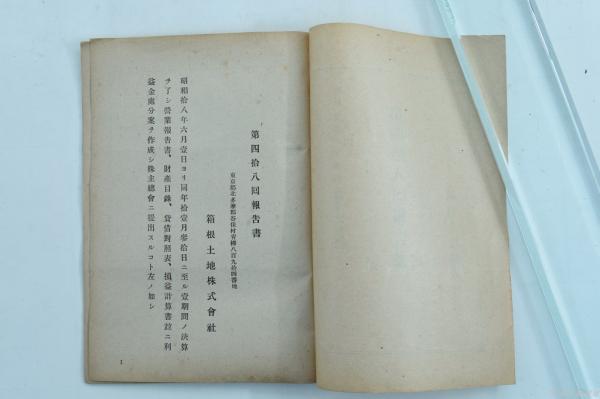 第四拾八回報告書
東京都北多摩郡谷保村青柳八百九拾四番地
箱根土地株式會社
昭和拾八年六月壹日ヨリ同年拾壹月參拾日ニ至ル壹期間ノ決算
ヲ了シ營業報告書、財産目錄、貸借對照表、損益計算書竝ニ利
益金處分案ヲ作成シ株主總會ニ提出スルコト左ノ如シ
1